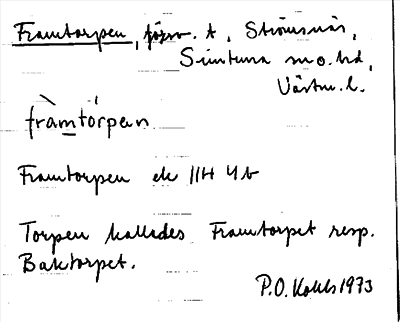 Framtorpen, försv. t, Strömsnäs,
Simtuna sn o. hd,
Västm. l.
fràmtórpen
Framtorpen ek 11H 4b
Torpen kallades Framtorpet resp.
Baktorpet.
P.O. Kohls 1973